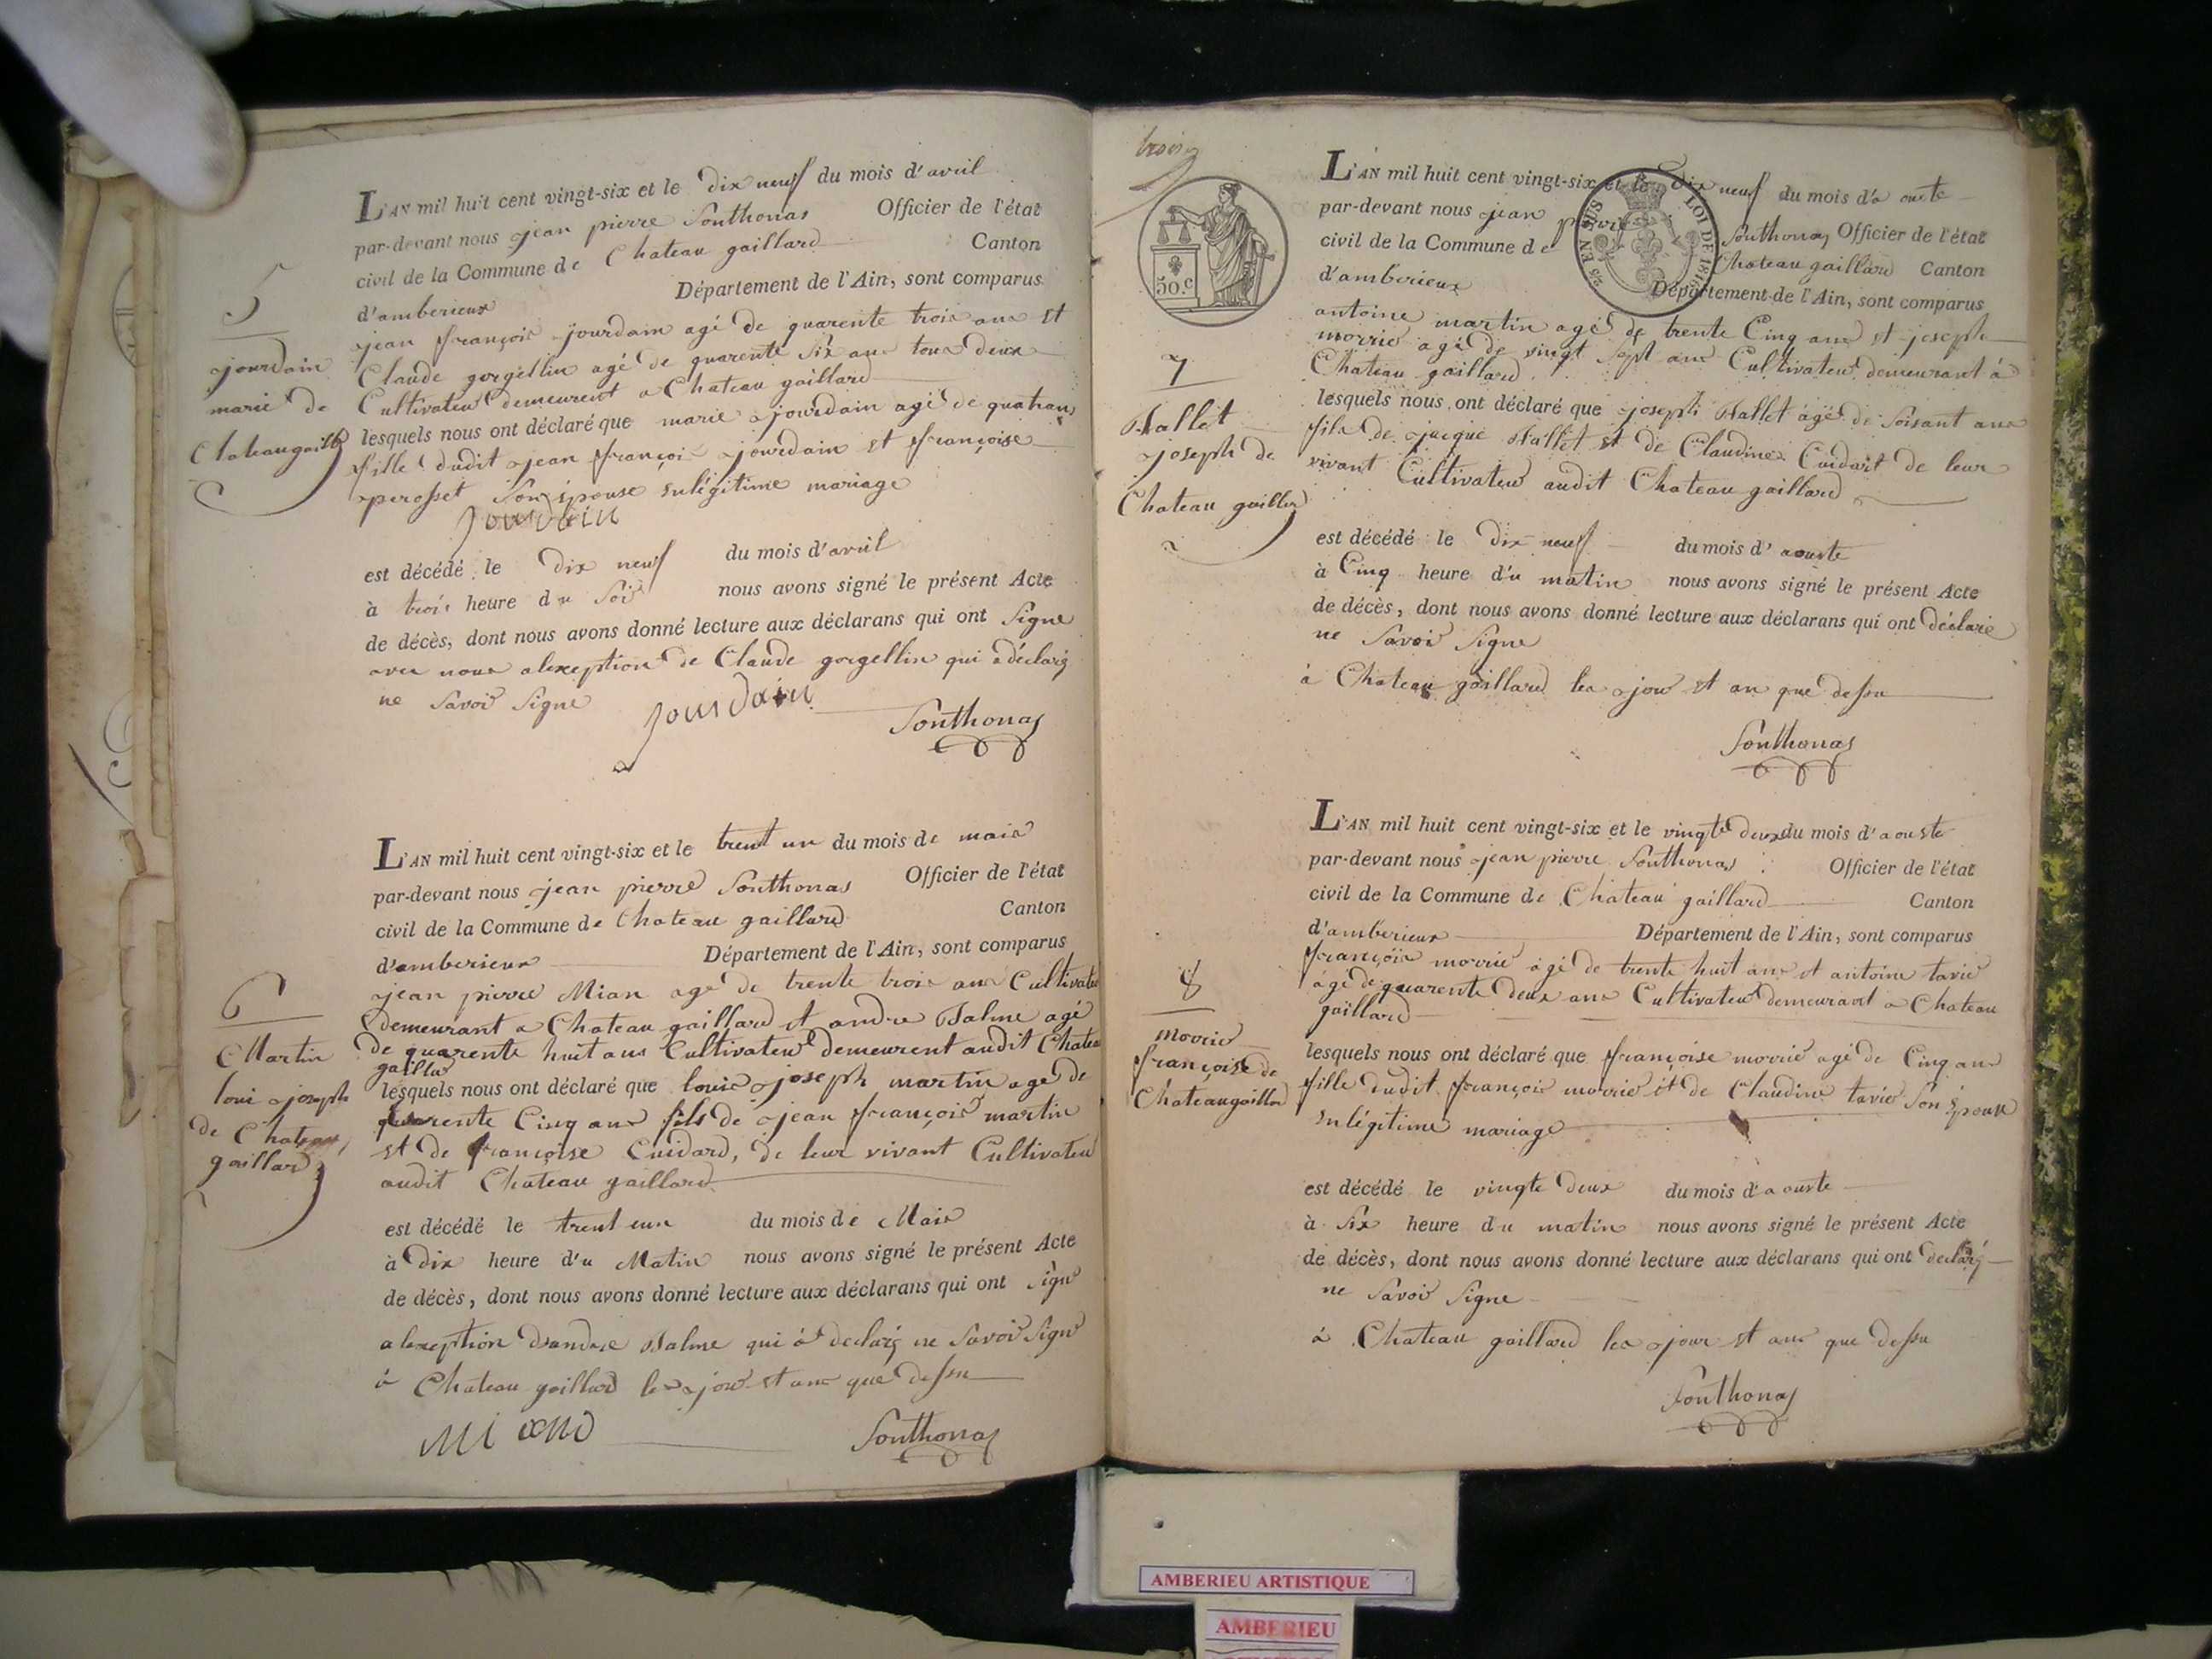 5
jourdain
marie de
Chateaugailld
L'AN mil huit cent vingt-six et le dix neuf du mois d'avril
par-devant nous jean pierre Sonthonas Officier de l'état
civil de la Commune de Chateau gaillard Canton
d'amberieux Département de l'Ain, sont comparus
jean françois jourdain agé de quarente trois ans et
Claude gorgellin agé de quarente six ans tous deux
Cultivateur demeurent a Chateau gaillard
lesquels nous ont déclaré que marie jourdain agé de quatrans
fille dudit jean françois jourdain et françoise
perosset son épouse enlégitime mariage
Jourdain
est décédé le dix neuf du mois d'avril
à trois heure du Soir nous avons signé le présent Acte
de décès, dont nous avons donné lecture aux déclarans qui ont Signe
avec nous alexeption de Claude gorgellin qui a déclaré
ne Savoir Signe
Jourdain
Sonthonas
6
Martin
loui joseph
de Chateau
gaillard
L'AN mil huit cent vingt-six et le trent un du mois de mais
par-devant nous jean pierre Sonthonas Officier de l'état
civil de la Commune de Chateau gaillard Canton
d'amberieux Département de l'Ain, sont comparus
jean pierre Mian age de trente trois ans Cultivateur
demeurant a Chateau gaillard et andre Balme agé
de quarente huit ans Cultivateur demeurent audit Chateau
gaillard
lesquels nous ont déclaré que louis joseph martin age de
quarente Cinq ans fils de jean françois martin
et de françoise Cuidard, de leur vivant Cultivateur
audit Chateau gaillard
est décédé le trent eun du mois de Mais
à dix heure d'u Matin nous avons signé le présent Acte
de décès, dont nous avons donné lecture aux déclarans qui ont Signe
alexeption dandre Balme qui à declaré ne Savoir Signe
à Chateau gaillard les jour et ans que dessu
Miand
Sonthonas
trois
50.c
25 EN SUS LOI DE 1816
7
Ballet
joseph de
Chateau gaillard
L'AN mil huit cent vingt-six et le dix neuf du mois d'a ouste
par-devant nous jean pierre Sonthonas Officier de l'état
civil de la Commune de Chateau gaillard Canton
d'amberieux Département de l'Ain, sont comparus
antoine martin agé de trente Cinq ans et joseph
morrié agé de vingt sept ans Cultivateur demeurant à
Chateau gaillard
lesquels nous ont déclaré que joseph Ballet agé de Soisant ans
fils de jacque Ballet et de Claudine Cuidart de leur
vivant Cultivateur audit Chateau gaillard
est décédé le dix neuf du mois d' aouste
à Cinq heure d'u matin nous avons signé le présent Acte
de décès, dont nous avons donné lecture aux déclarans qui ont déclaré
ne Savoir Signe
à Chateau gaillard les jour et an que dessu
Sonthonas
8
morrié
françoise de
Chateaugaillard
L'AN mil huit cent vingt-six et le vingte deux du mois d'aouste
par-devant nous jean pierre Sonthonas Officier de l'état
civil de la Commune de Chateau gaillard Canton
d'amberieux Département de l'Ain, sont comparus
françois morrié agé de trente huit ans et antoine tavié
âgé de quarente deux ans Cultivateur demeurant a Chateau
gaillard
lesquels nous ont déclaré que françoise morrié agé de Cinq ans
fille dudit françois morrié et de Claudine tavié Son épouse
enlégitime mariage
est décédé le vingte deux du mois d'a ouste
à Six heure du matin nous avons signé le présent Acte
de décès, dont nous avons donné lecture aux déclarans qui ont declaré
ne Savoir Signe
à Chateau gaillard les jour et ans que dessu
Sonthonas
AMBERIEU ARTISTIQUE
AMBERIEU